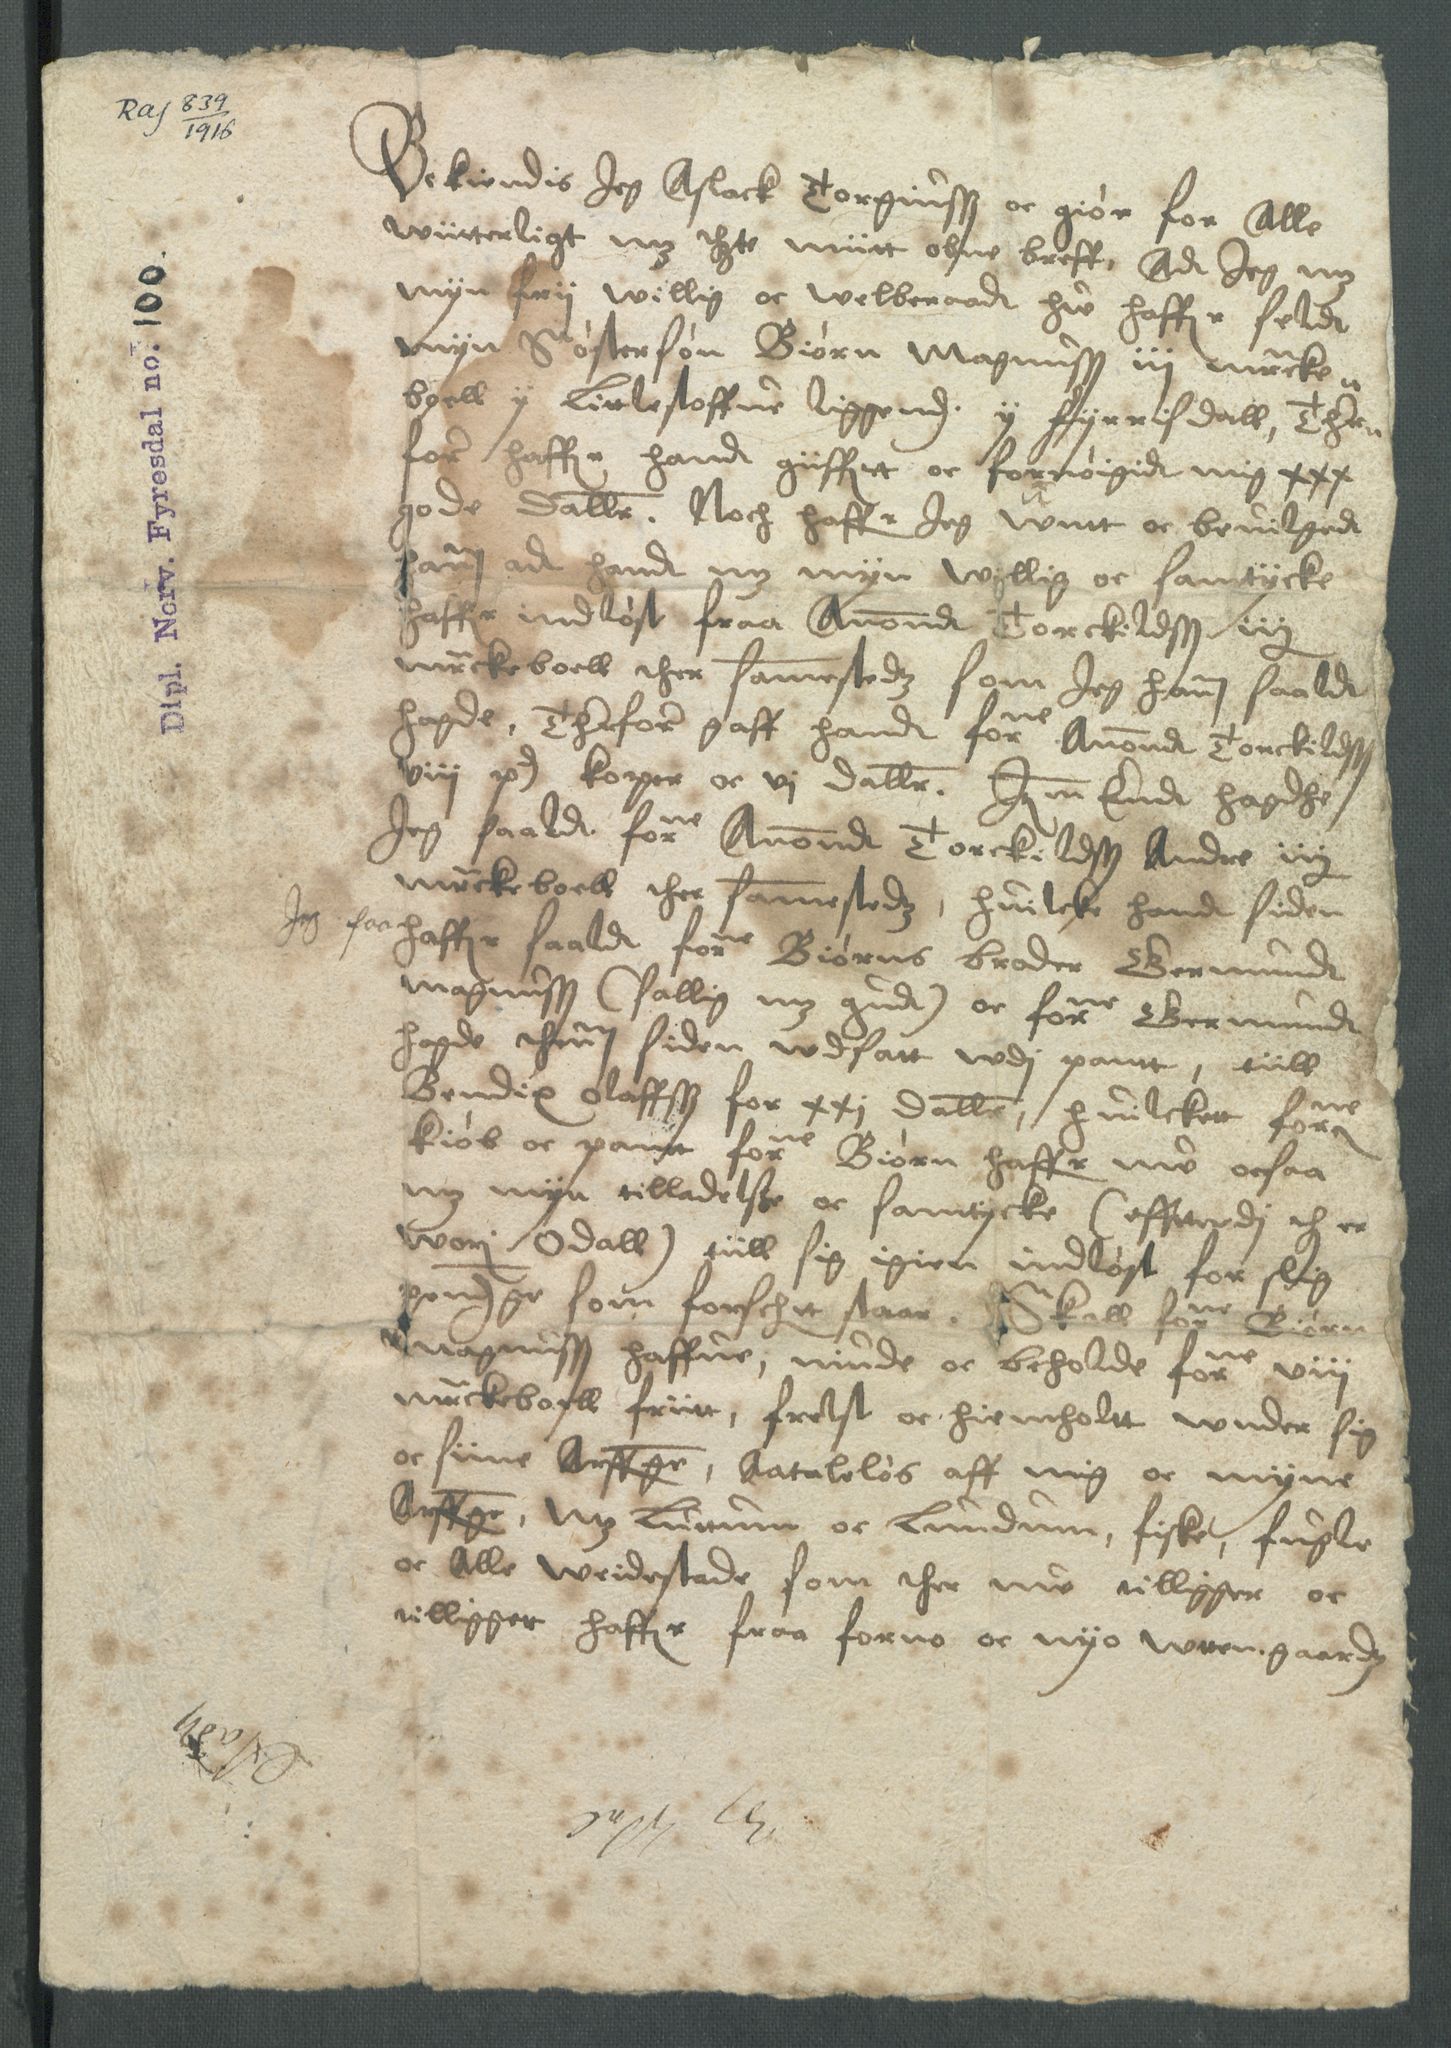 Raf 839/1916
Dipl. Norv. Fyresdal no. 100.
Bekiendis Jeg Aslack Torgiußß oc giör for Alle
witterligt mz thtte mitt obne breff, Adt Jeg mz
myn frij willig oc welberaadt hw haffr seldt
myn Söstersön Biörn Magnußß iij mrcke
boell ÿ Litlestoffue liggend. ÿ fÿrrisdall, Then
for haffr handt giiffuitt oc fornöigidt mig xxx
gode dallr. Noch haffr Jeg wntt oc beuilgedt
hanm adt handt mz myn willig oc samtÿcke
haffr indlöst fraa Anondt Torckildßß iiij
mrckeboell ther samestedz som Jeg hanm saaldt
hagde, Therfor gaff handt forne Anondt Torckildßß
viij pd koper oc vj dallr. Jtm Endt hagdhe
Jeg saaldt forne Anondt Torckildßß Andre iiij
mrckeboell ther samestedz, huilcke handt siden
Jeg saa
haffr saaldt forne Biörns broder Germundt
Magnußß (sallig mz gudt) oc forne Germundt
hagde thenm siden wdsatt wdj pantt, till
Bendix olaffßß for xxj dallr, huilckett forne
kiöb oc pantt forne Biörn haffr nw ocsaa
mz myn tilladelse oc samtÿcke (effterdj th er
worj Odall) till sig igien indlöst for slig
pendge som forschr staar. Skall forne Biörn
Magnußß haffue, niude oc beholde forne viij
mrckeboell friitt, frelst oc hiemholtt wnder sig
oc siine Arffge, Aatalelös aff mig oc myne
Arffge, mz Luttum oc Lundum, fiske, fugle
oc Alle weidestade som ther nw tilligger oc
tilligget haffr fraa forno oc nÿo wttengaardz